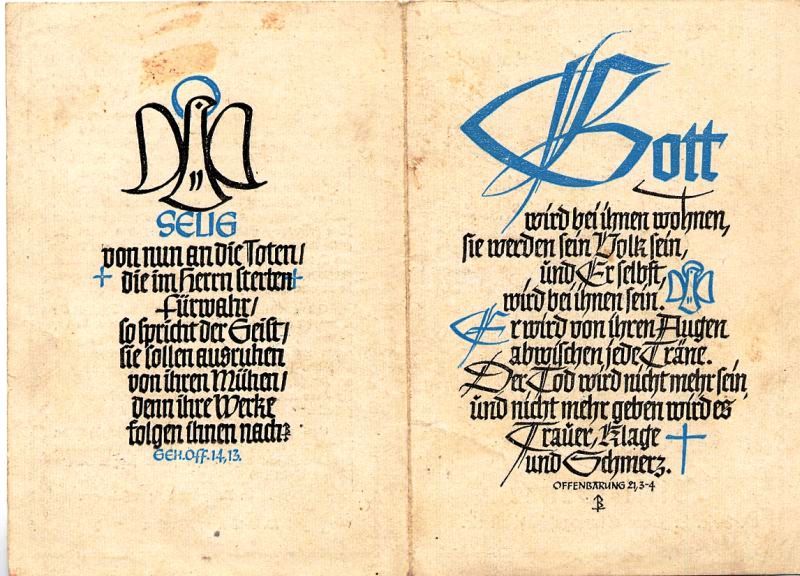 SELIG
von nun an die Toten/
die im Herrn sterben
fürwahr/
so spricht der Geist/
sie sollen ausruhen
von ihren Mühen/
denn ihre Werke
folgen ihnen nach
GEH.OFF.14,13.
Gott
wird bei ihnen wohnen,
sie werden sein Volk sein,
und Er selbst,
wird bei ihnen sein.
Er wird von ihren Augen
abwischen jede Träne.
Der Tod wird nicht mehr sein
und nicht mehr geben wird es
Trauer, Klage
und Schmerz.
OFFENBARUNG 21,3-4